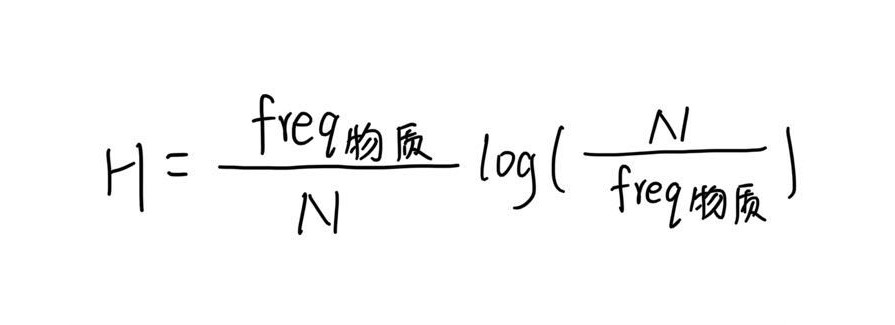 H = freq物质 / N log( N / freq物质 )